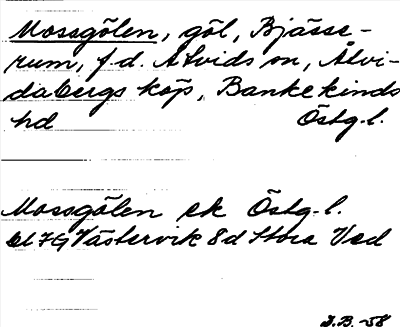 Mossgölen, göl, Bjässe-
rum, f.d. Åtvids sn, Åtvi-
dabergs köp, Bankekinds
hd Östg.l.
Mossgölen ek Östg.l.
bl 7G Västervik 8d Stora Ved
D.B. -58